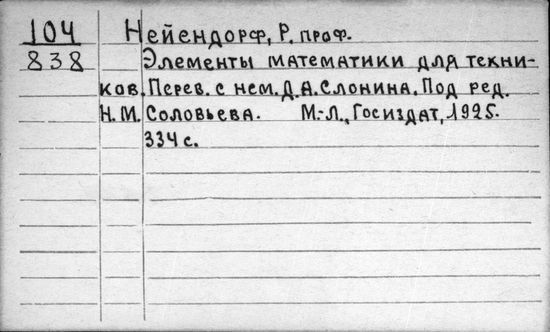 104 Нейендорф, Р. проф.
838 Элементы математики для техни-
ков. Перев. с нем. Д.А. Слонина. Под ред.
Н.М. Соловьева. М.-Л., Госиздат, 1925.
334 с.